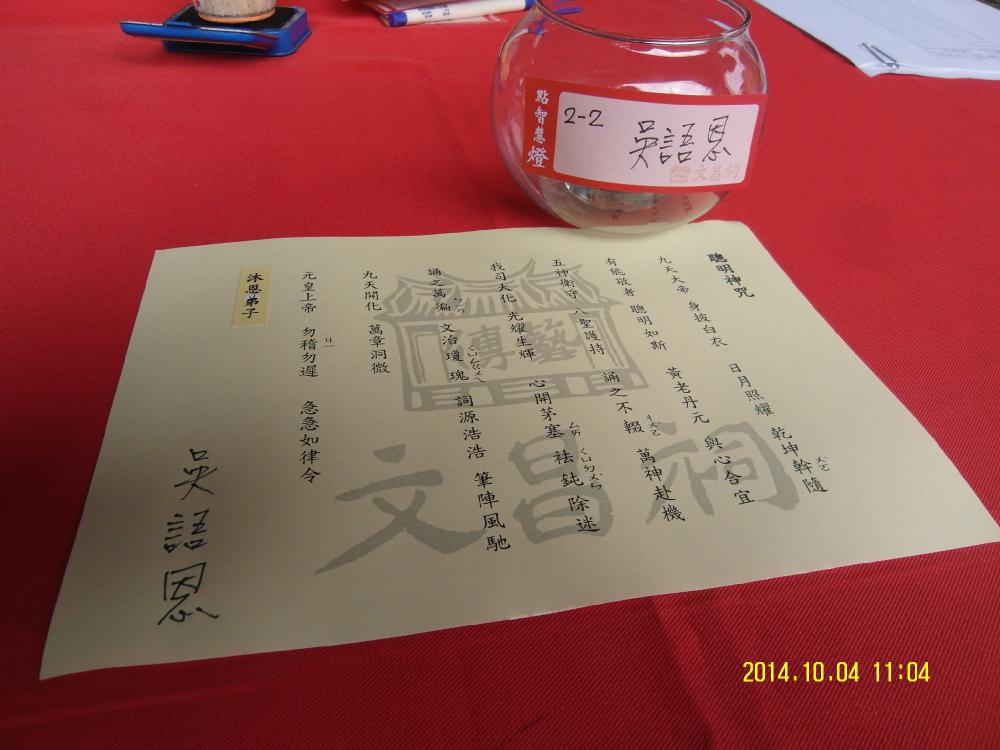 點智慧燈
2-2
吳語恩
文昌祠
聰明神咒
九天大帝 身披白衣 日月照耀 乾坤斡隨
ㄨㄛ
有能敬者 聰明如斯 黃老丹元 與心合宜
五神衛守 八聖護持 誦之不輟 萬神赴機
ㄔㄨㄛ
我司大化 光耀生輝 心開茅塞 祛鈍除迷
ㄙㄞ ㄑㄩ ㄉㄨㄣ
誦之萬徧 文治瓊瑰 詞源浩浩 筆陣風馳
ㄅㄧㄢ ㄑㄩㄥ ㄍㄨㄟ
九天開化 萬章洞微
元皇上帝 勿稽勿遲 急急如律令
ㄐㄧ
沐恩弟子
吳語恩
傳藝
文昌祠
2014.10.04 11:04